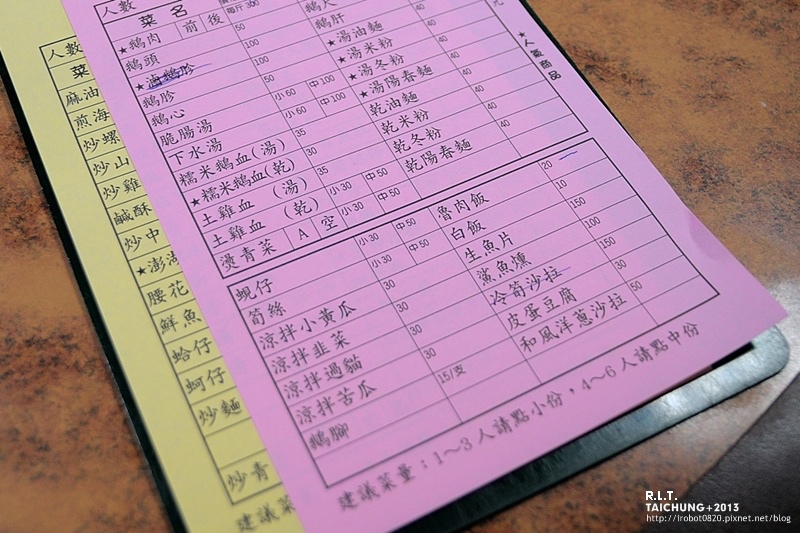 人數
菜名 前 後
★鵝肉 每斤300
鵝頭 50
鵝胗 100
鵝心 50
脆腸湯 小60 中100
下水湯 小60 中100
糯米鵝血(湯) 35
★糯米鵝血(乾) 30
土雞血 (湯) 35
土雞血 (乾) 小30 中50
燙青菜 A 空 小30 中50
鵝肝
★湯油麵 40
★湯米粉 40
★湯冬粉 40
★湯陽春麵 40
乾油麵 40
乾米粉 40
乾冬粉 40
乾陽春麵 40
元
★人氣商品
蜆仔 小30 中50
筍絲 小30 中50
涼拌小黃瓜 30
涼拌韭菜 30
涼拌過貓 30
涼拌苦瓜 30
鵝腳 15/支
魯肉飯 20
白飯 10
生魚片 100
鯊魚燻 100
冷筍沙拉 150
皮蛋豆腐 30
和風洋蔥沙拉 50
建議菜量：1～3人請點小份，4～6人請點中份
人數
菜
麻油
煎海
炒螺
炒山
炒雞
鹹酥
炒中
★澎湖
腰花
鮮魚
蛤仔
蚵仔
炒麵
炒青
建議菜
R.I.T.
TAICHUNG+2013
http://irobot0820.pixnet.net/blog